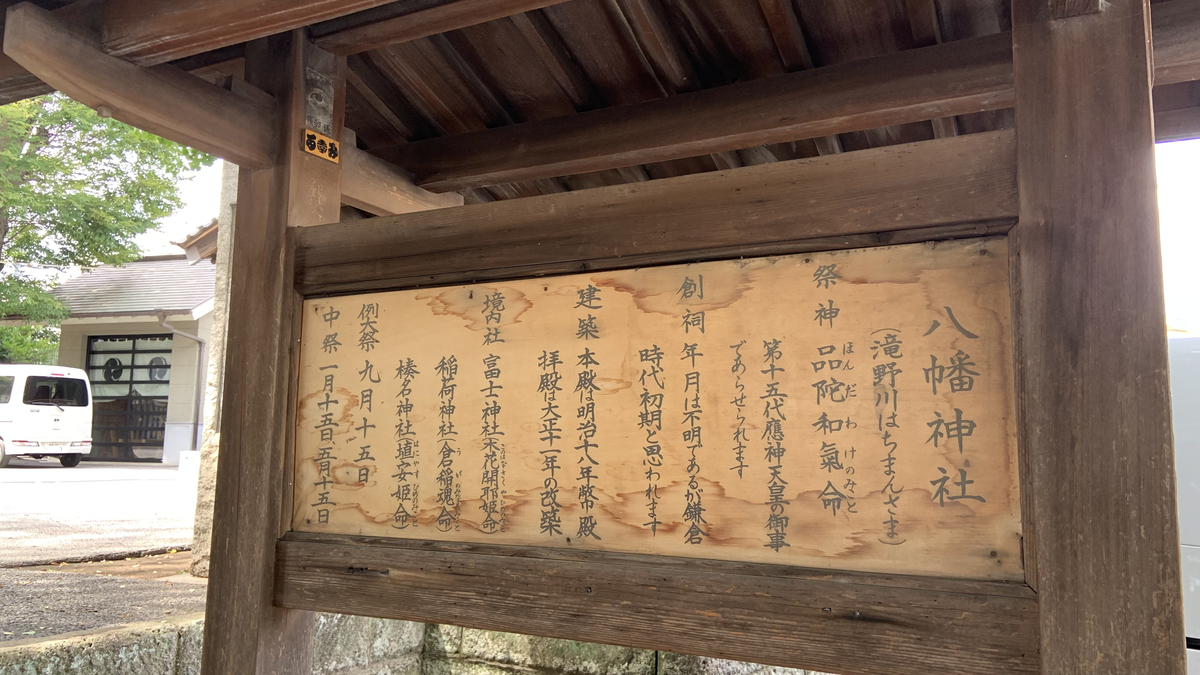 八幡神社
（滝野川はちまんさま）
祭神 品陀和氣命
ほんだわけのみこと
第十五代應神天皇の御事
であらせられます
創祠 年月は不明であるが鎌倉
時代初期と思われます
建築 本殿は明治十八年幣殿
拝殿は大正十一年の改築
境内社 富士神社（木花開耶姫命）
稲荷神社（倉稲魂命）
榛名神社（埴安姫命）
はにやすひめのみこと
例大祭 九月十五日
中祭 一月十五日五月十五日